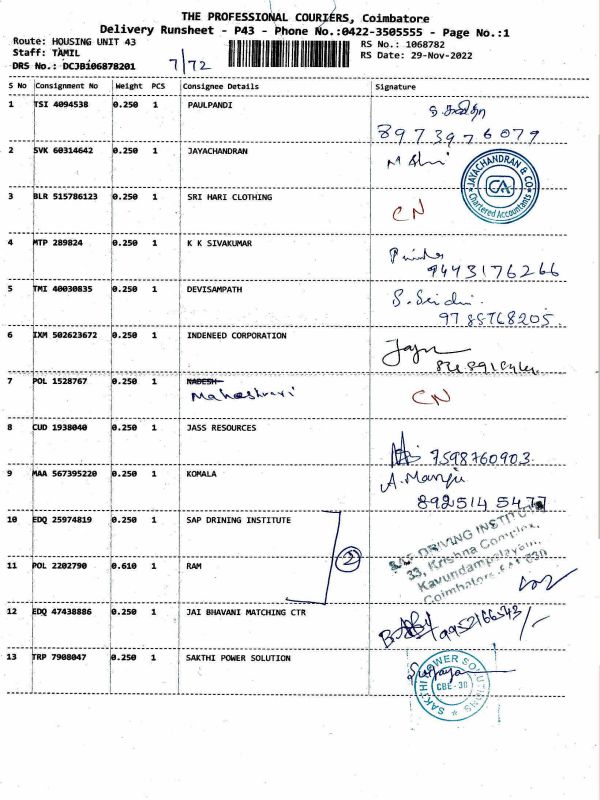 THE PROFESSIONAL COURIERS, Coimbatore
Delivery Runsheet - P43 - Phone No.:0422-3505555 - Page No.:1
Route: HOUSING UNIT 43 RS No.: 1068782
Staff: TAMIL RS Date: 29-Nov-2022
DRS No.: DCJB106878201 7/72
S No Consignment No Weight PCS Consignee Details Signature
1 TSI 4094538 0.250 1 PAULPANDI
8973976079
2 SVK 60314642 0.250 1 JAYACHANDRAN
JAYACHANDRAN & CO
CA
Chartered Accountants
3 BLR 515786123 0.250 1 SRI HARI CLOTHING CN
4 MTP 289824 0.250 1 K K SIVAKUMAR
9443176266
5 TMI 40030835 0.250 1 DEVISAMPATH
6 IXM 502623672 0.250 1 INDENEED CORPORATION
7 POL 1528767 0.250 1 CN
8 CUD 1938040 0.250 1 JASS RESOURCES
7598760903
9 MAA 567395220 0.250 1 KOMALA A. Manju
10 EDQ 25974819 0.250 1 SAP DRINING INSTITUTE
2
DRIVING INSTITUTE
33, Krishna Complex,
Kavundampalayam,
Coimbatore
11 POL 2202790 0.610 1 RAM
12 EDQ 47438886 0.250 1 JAI BHAVANI MATCHING CTR
13 TRP 7908047 0.250 1 SAKTHI POWER SOLUTION
SAKTHI POWER SOLUTIONS
CBE - 30